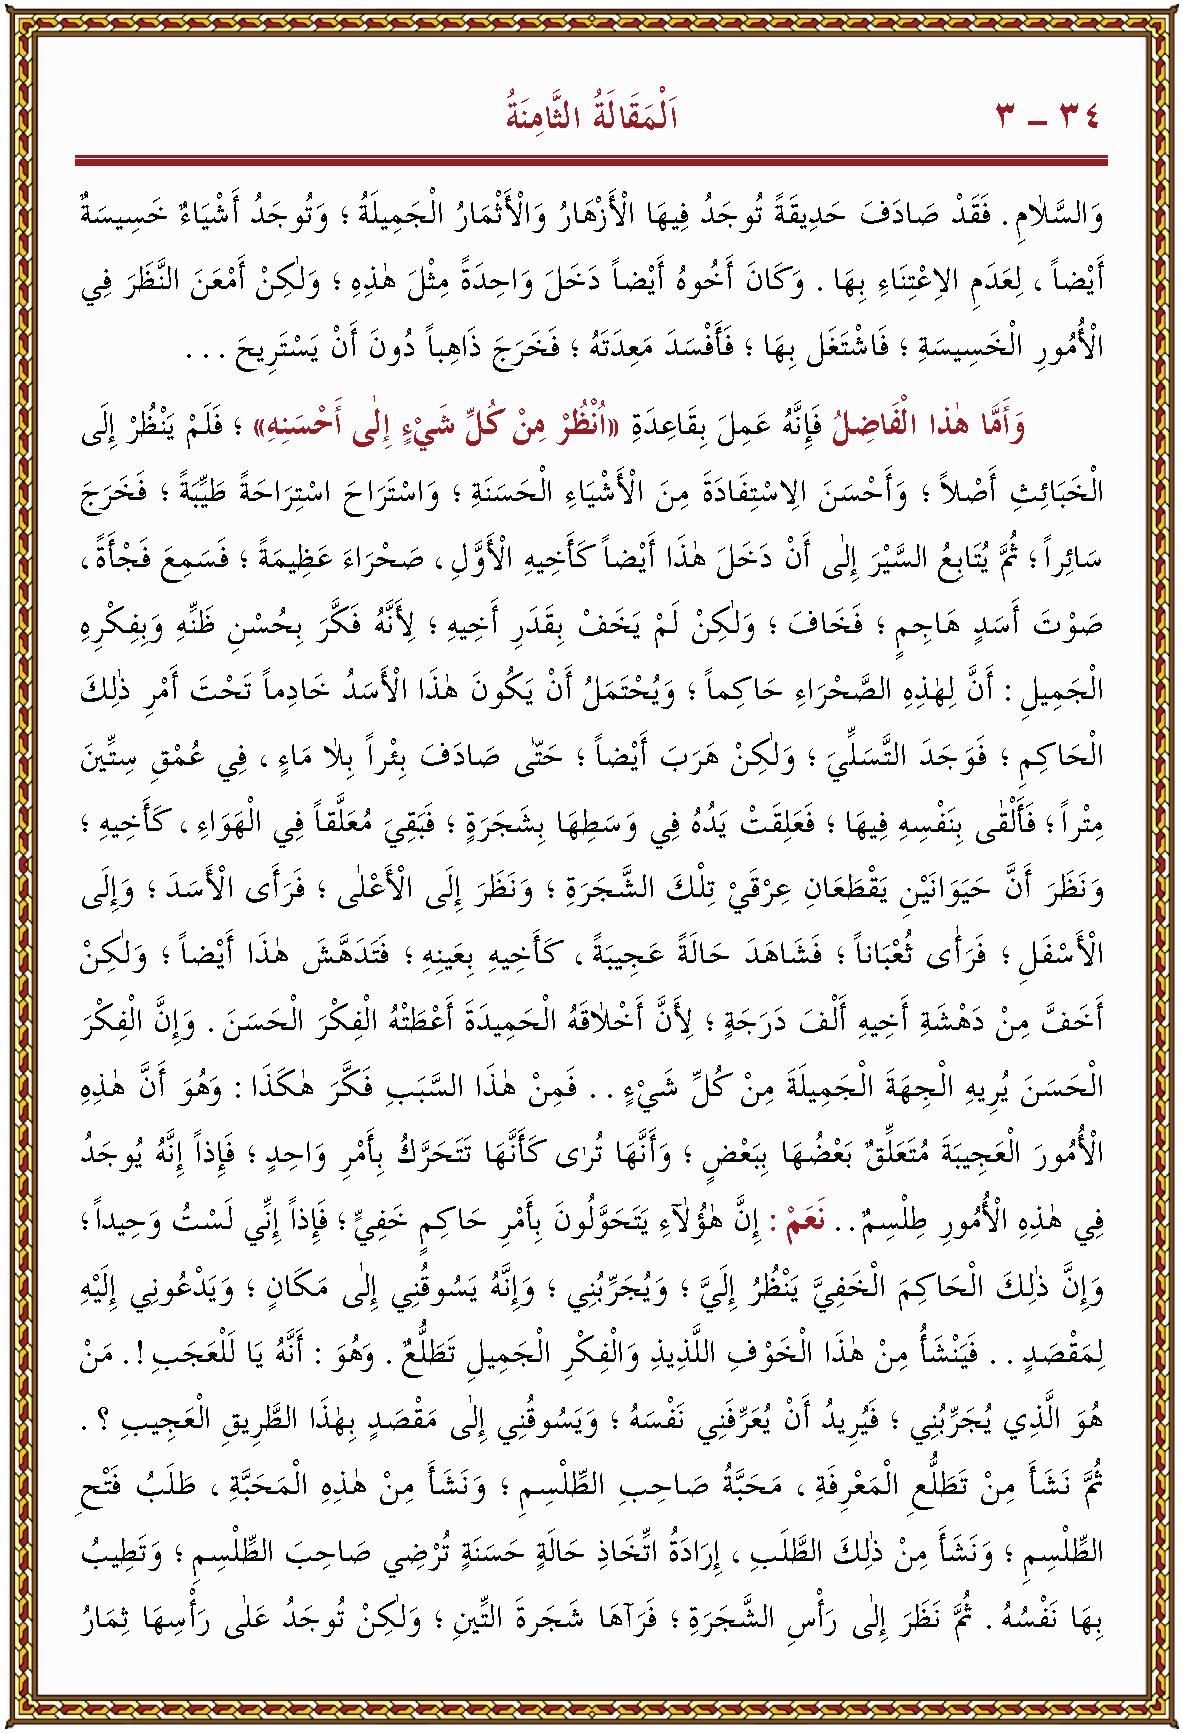 ٣٤ – ٣ اَلْمَقَالَةُ الثَّامِنَةُ
وَالسَّلاٰمِ . فَقَدْ صَادَفَ حَدِيقَةً تُوجَدُ فِيهَا الْأَزْهَارُ وَالْأَثْمَارُ الْجَمِيلَةُ ؛ وَتُوجَدُ أَشْيَاءٌ خَسِيسَةٌ
أَيْضاً ، لِعَدَمِ الِاعْتِنَاءِ بِهَا . وَكَانَ أَخُوهُ أَيْضاً دَخَلَ وَاحِدَةً مِثْلَ هٰذِهِ ؛ وَلٰكِنْ أَمْعَنَ النَّظَرَ فِي
الْأُمُورِ الْخَسِيسَةِ ؛ فَاشْتَغَلَ بِهَا ؛ فَأَفْسَدَ مَعِدَتَهُ ؛ فَخَرَجَ ذَاهِباً دُونَ أَنْ يَسْتَرِيحَ . . .
وَأَمَّا هٰذَا الْفَاضِلُ فَإِنَّهُ عَمِلَ بِقَاعِدَةِ «اُنْظُرْ مِنْ كُلِّ شَيْءٍ إِلٰى أَحْسَنِهِ» ؛ فَلَمْ يَنْظُرْ إِلَى
الْخَبَائِثِ أَصْلاً ؛ وَأَحْسَنَ الِاسْتِفَادَةَ مِنَ الْأَشْيَاءِ الْحَسَنَةِ ؛ وَاسْتَرَاحَ اسْتِرَاحَةً طَيِّبَةً ؛ فَخَرَجَ
سَائِراً ؛ ثُمَّ يُتَابِعُ السَّيْرَ إِلٰى أَنْ دَخَلَ هٰذَا أَيْضاً كَأَخِيهِ الْأَوَّلِ ، صَحْرَاءَ عَظِيمَةً ؛ فَسَمِعَ فَجْأَةً ،
صَوْتَ أَسَدٍ هَاجِمٍ ؛ فَخَافَ ؛ وَلٰكِنْ لَمْ يَخَفْ بِقَدَرِ أَخِيهِ ؛ لِأَنَّهُ فَكَّرَ بِحُسْنِ ظَنِّهِ وَبِفِكْرِهِ
الْجَمِيلِ : أَنَّ لِهٰذِهِ الصَّحْرَاءِ حَاكِماً ؛ وَيُحْتَمَلُ أَنْ يَكُونَ هٰذَا الْأَسَدُ خَادِماً تَحْتَ أَمْرِ ذٰلِكَ
الْحَاكِمِ ؛ فَوَجَدَ التَّسَلِّيَ ؛ وَلٰكِنْ هَرَبَ أَيْضاً ؛ حَتّٰى صَادَفَ بِئْراً بِلاٰ مَاءٍ ، فِي عُمْقِ سِتِّينَ
مِتْراً ؛ فَأَلْقٰى بِنَفْسِهِ فِيهَا ؛ فَعَلِقَتْ يَدُهُ فِي وَسَطِهَا بِشَجَرَةٍ ؛ فَبَقِيَ مُعَلَّقاً فِي الْهَوَاءِ ، كَأَخِيهِ ؛
وَنَظَرَ أَنَّ حَيَوَانَيْنِ يَقْطَعَانِ عِرْقَيْ تِلْكَ الشَّجَرَةِ ؛ وَنَظَرَ إِلَى الْأَعْلٰى ؛ فَرَأَى الْأَسَدَ ؛ وَإِلَى
الْأَسْفَلِ ؛ فَرَأٰى ثُعْبَاناً ؛ فَشَاهَدَ حَالَةً عَجِيبَةً ، كَأَخِيهِ بِعَيْنِهِ ؛ فَتَدَهَّشَ هٰذَا أَيْضاً ؛ وَلٰكِنْ
أَخَفَّ مِنْ دَهْشَةِ أَخِيهِ أَلْفَ دَرَجَةٍ ؛ لِأَنَّ أَخْلاٰقَهُ الْحَمِيدَةَ أَعْطَتْهُ الْفِكْرَ الْحَسَنَ . وَإِنَّ الْفِكْرَ
الْحَسَنَ يُرِيهِ الْجِهَةَ الْجَمِيلَةَ مِنْ كُلِّ شَيْءٍ . . فَمِنْ هٰذَا السَّبَبِ فَكَّرَ هٰكَذَا : وَهُوَ أَنَّ هٰذِهِ
الْأُمُورَ الْعَجِيبَةَ مُتَعَلِّقٌ بَعْضُهَا بِبَعْضٍ ؛ وَأَنَّهَا تُرٰى كَأَنَّهَا تَتَحَرَّكُ بِأَمْرِ وَاحِدٍ ؛ فَإِذاً إِنَّهُ يُوجَدُ
فِي هٰذِهِ الْأُمُورِ طِلْسِمٌ . . نَعَمْ : إِنَّ هٰؤُلَآءِ يَتَحَوَّلُونَ بِأَمْرِ حَاكِمٍ خَفِيٍّ ؛ فَإِذاً إِنِّي لَسْتُ وَحِيداً ؛
وَإِنَّ ذٰلِكَ الْحَاكِمَ الْخَفِيَّ يَنْظُرُ إِلَيَّ ؛ وَيُجَرِّبُنِي ؛ وَإِنَّهُ يَسُوقُنِي إِلٰى مَكَانٍ ؛ وَيَدْعُونِي إِلَيْهِ
لِمَقْصَدٍ . . فَيَنْشَأُ مِنْ هٰذَا الْخَوْفِ اللَّذِيذِ وَالْفِكْرِ الْجَمِيلِ تَطَلُّعٌ . وَهُوَ : أَنَّهُ يَا لَلْعَجَبِ ! . مَنْ
هُوَ الَّذِي يُجَرِّبُنِي ؛ فَيُرِيدُ أَنْ يُعَرِّفَنِي نَفْسَهُ ؛ وَيَسُوقُنِي إِلٰى مَقْصَدٍ بِهٰذَا الطَّرِيقِ الْعَجِيبِ ؟ .
ثُمَّ نَشَأَ مِنْ تَطَلُّعِ الْمَعْرِفَةِ ، مَحَبَّةُ صَاحِبِ الطِّلْسِمِ ؛ وَنَشَأَ مِنْ هٰذِهِ الْمَحَبَّةِ ، طَلَبُ فَتْحِ
الطِّلْسِمِ ؛ وَنَشَأَ مِنْ ذٰلِكَ الطَّلَبِ ، إِرَادَةُ اتِّخَاذِ حَالَةٍ حَسَنَةٍ تُرْضِي صَاحِبَ الطِّلْسِمِ ؛ وَتَطِيبُ
بِهَا نَفْسُهُ . ثُمَّ نَظَرَ إِلٰى رَأْسِ الشَّجَرَةِ ؛ فَرَآهَا شَجَرَةَ التِّينِ ؛ وَلٰكِنْ تُوجَدُ عَلٰى رَأْسِهَا ثِمَارُ